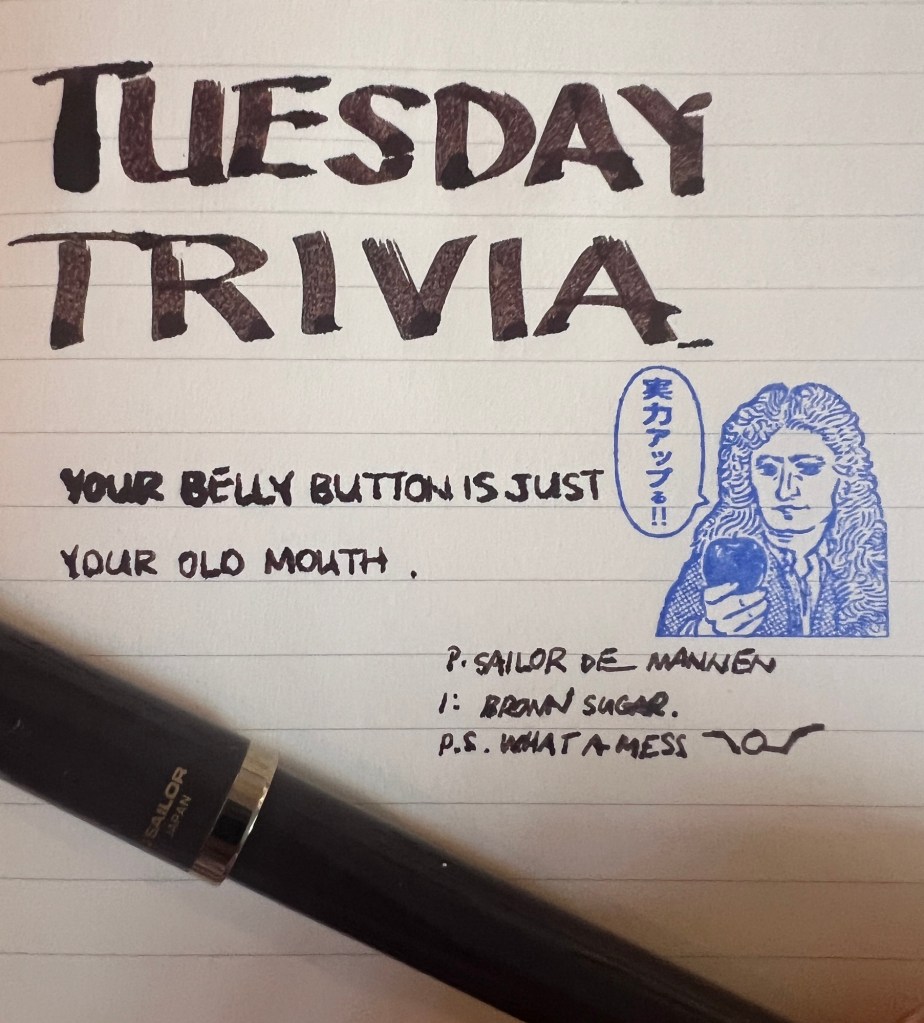 TUESDAY
TRIVIA
実力アップる!!
YOUR BELLY BUTTON IS JUST
YOUR OLD MOUTH.
P. SAILOR DE MANNEN
I: BROWN SUGAR.
P.S. WHAT A MESS
SAILOR
JAPAN